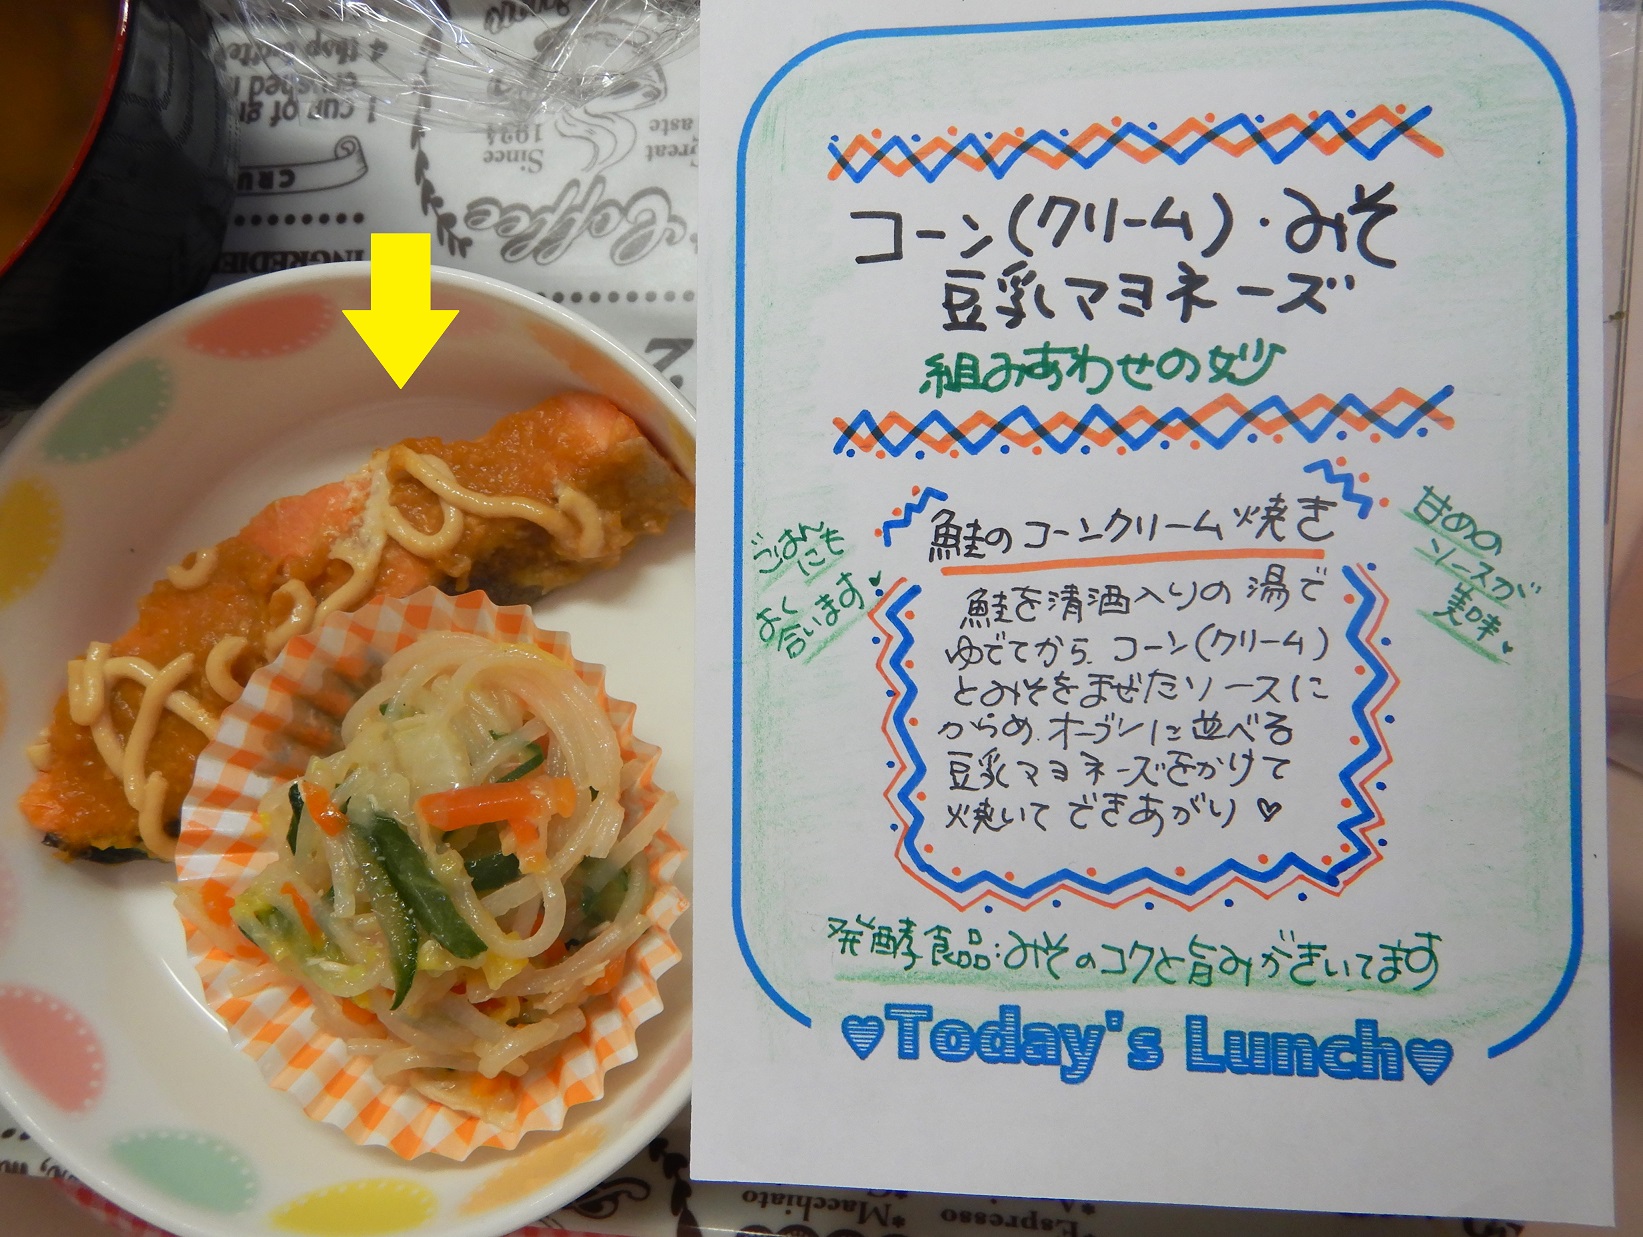 コーン(クリーム)・みそ
豆乳マヨネーズ
組みあわせの妙
鮭のコーンクリーム焼き
ごはんも
に
よく
合います♥
甘めの
ソースが
美味♥
鮭を清酒入りの湯で
ゆでてから、コーン(クリーム)
とみそをまぜたソースに
からめ、オーブンに並べる
豆乳マヨネーズをかけて
焼いて できあがり♡
発酵食品:みそのコクと旨みがきいてます
♥Today's Lunch♥
4 tbsp
1 cup of
CRU
INGREDIE
Since
1934
Great
aste
Coffee
2.
*Macchiato
Espresso